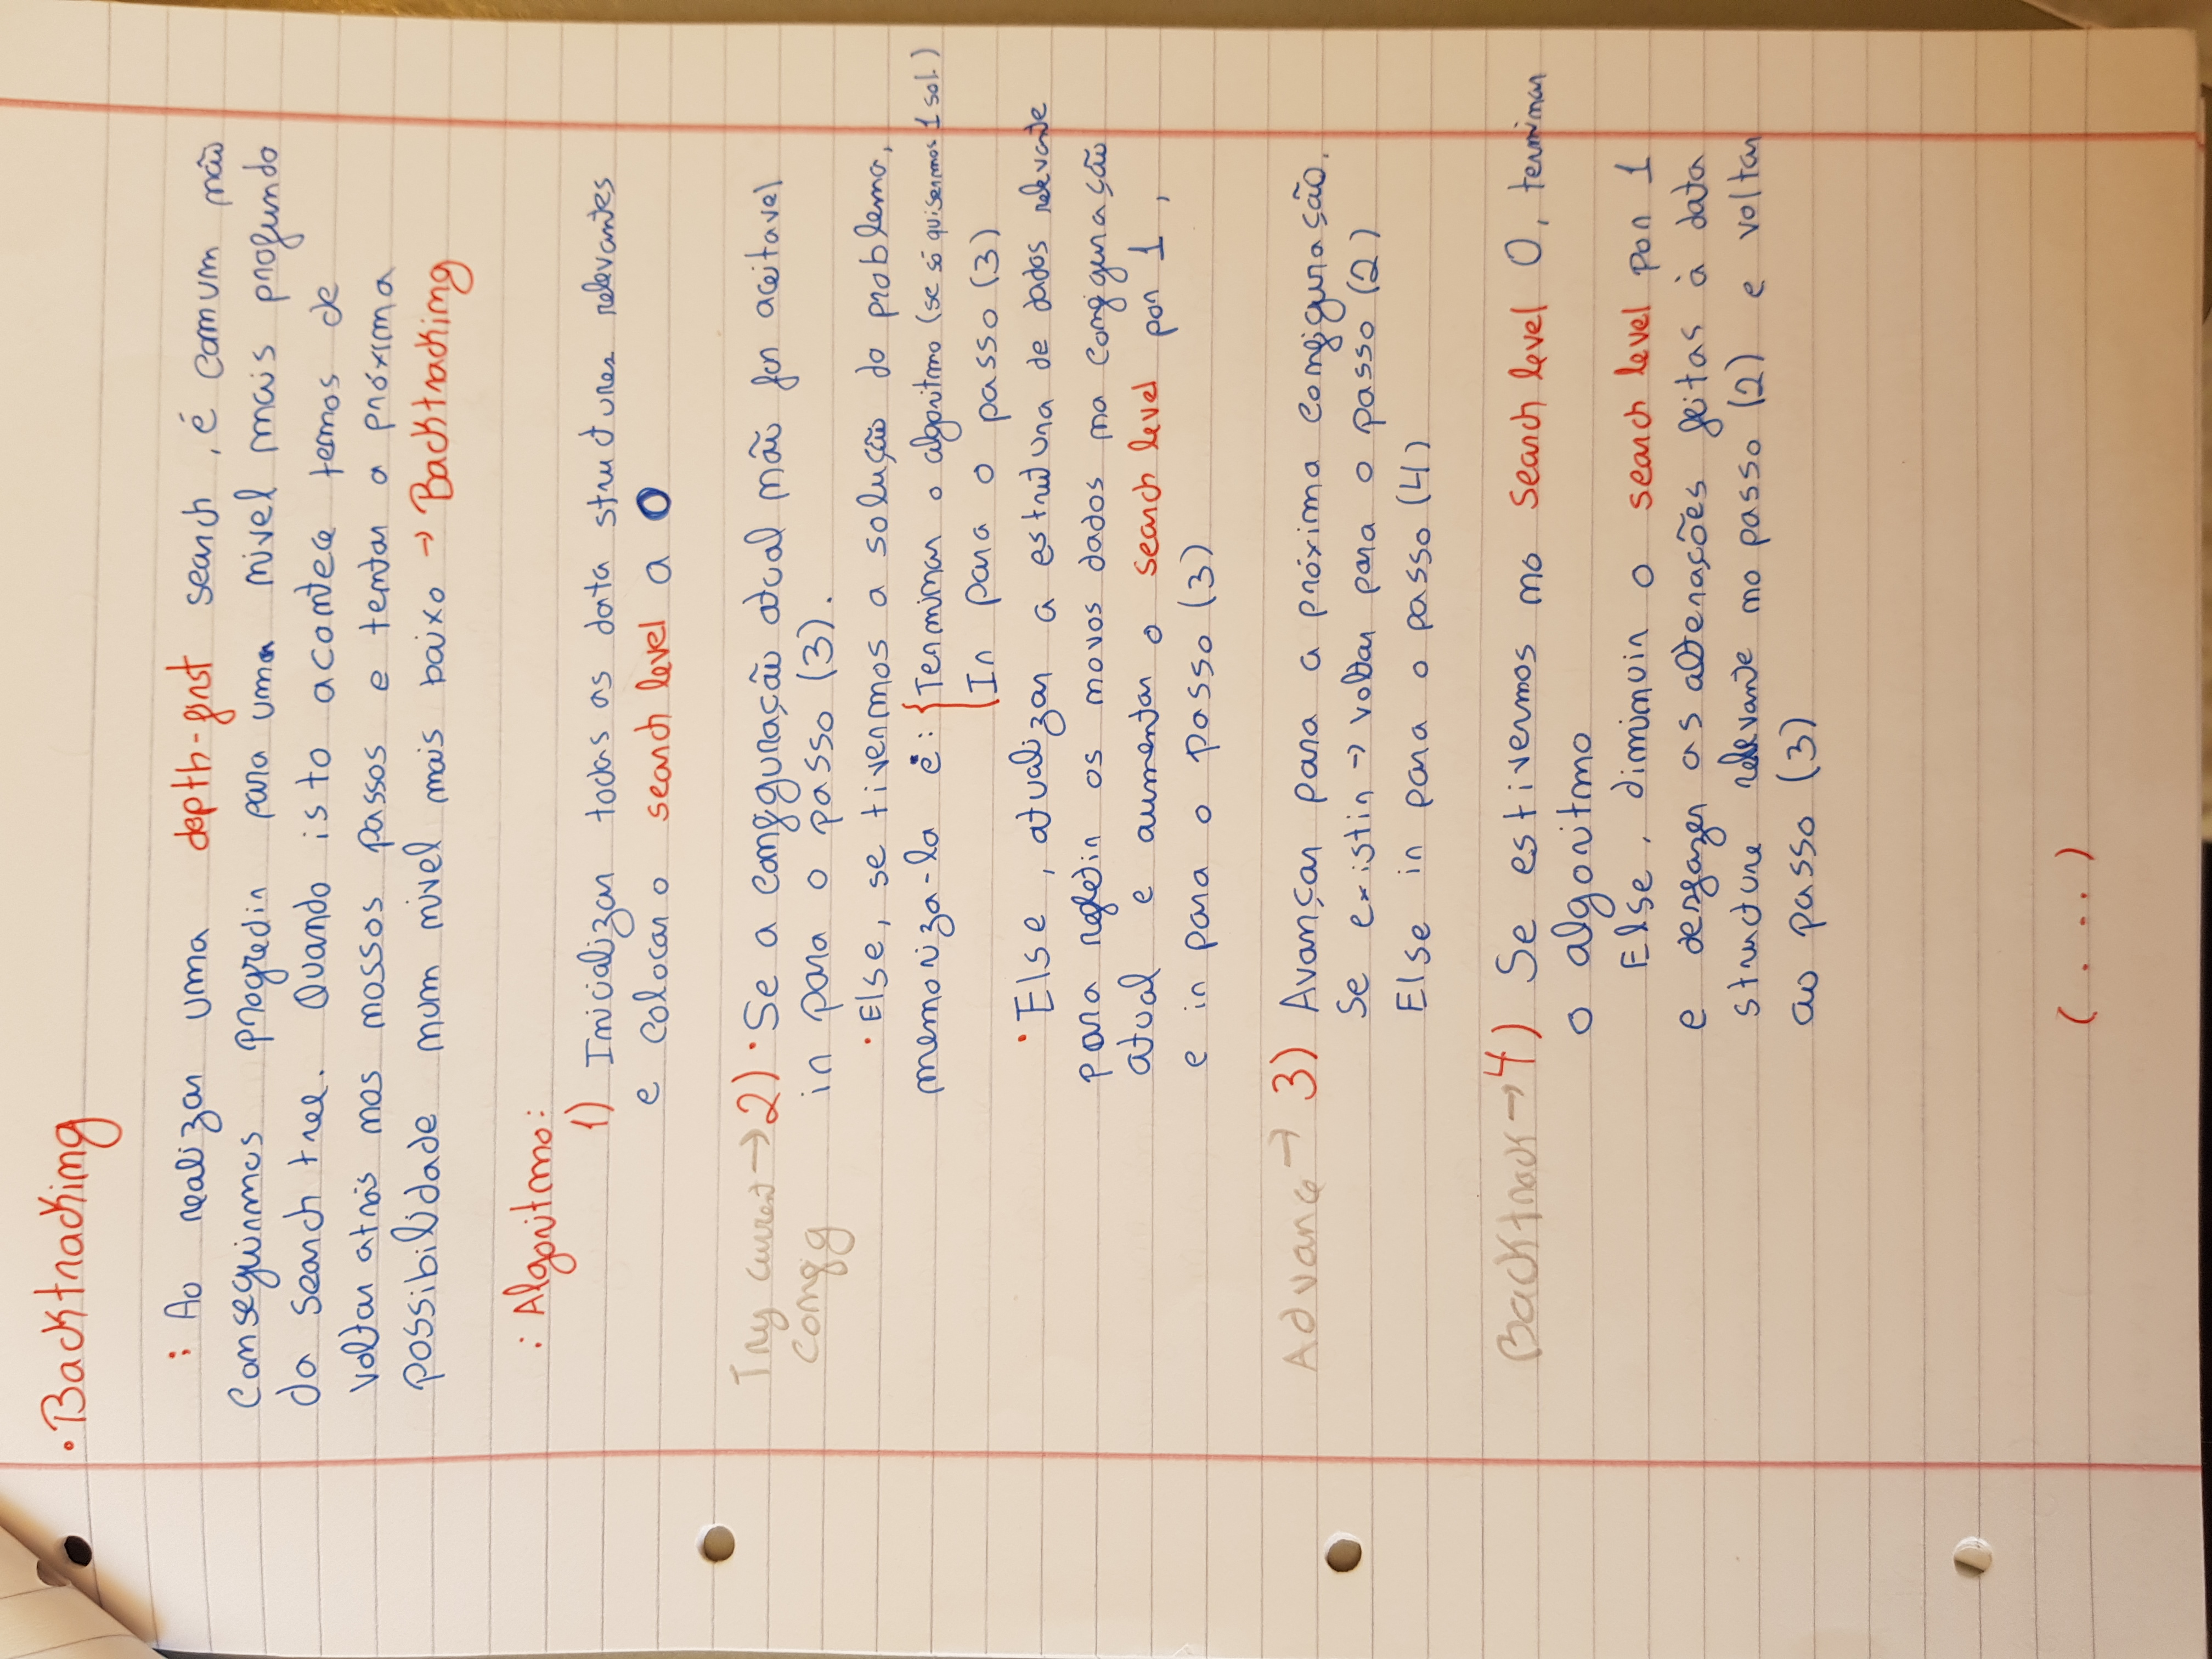 • Backtracking
: Ao realizar uma depth-first search, é comum não
conseguirmos progredir para uma nivel mais profundo
da search tree. Quando isto acontece temos de
voltar atrás nos nossos passos e tentar a próxima
possibilidade num nivel mais baixo → Backtracking
: Algoritmo:
1) Inicializar todas as data structures relevantes
e colocar o search level a 0
Try current → 2) • Se a configuração atual não for aceitavel
config ir para o passo (3).
• Else, se tivermos a solução do problema,
memoriza-la e: { Terminar o algoritmo (se só quisermos 1 sol.)
Ir para o passo (3)
• Else, atualizar a estrutura de dados relevante
para refletir os novos dados na configuração
atual e aumentar o search level por 1,
e ir para o passo (3)
Advance → 3) Avançar para a próxima configuração.
Se existir → voltar para o passo (2)
Else ir para o passo (4)
Backtrack → 4) Se estivermos no search level 0, terminar
o algoritmo
Else, diminuir o search level por 1
e desfazer as alterações feitas à data
structure relevante no passo (2) e voltar
ao passo (3)
(...)